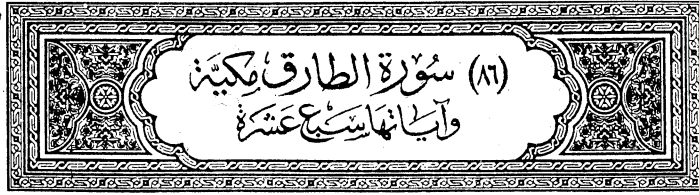 (٨٦) سُورَة الطارق مكيَّة
وآياتها سَبع عَشرَة